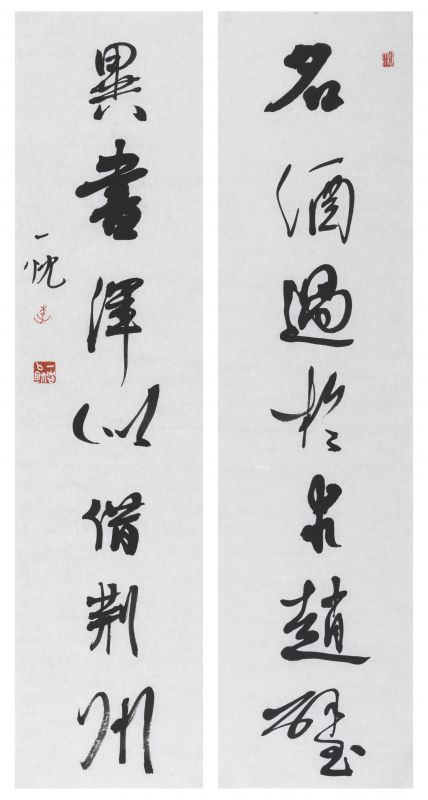 名酒過於求趙璧
異書渾似借荆州
一忱